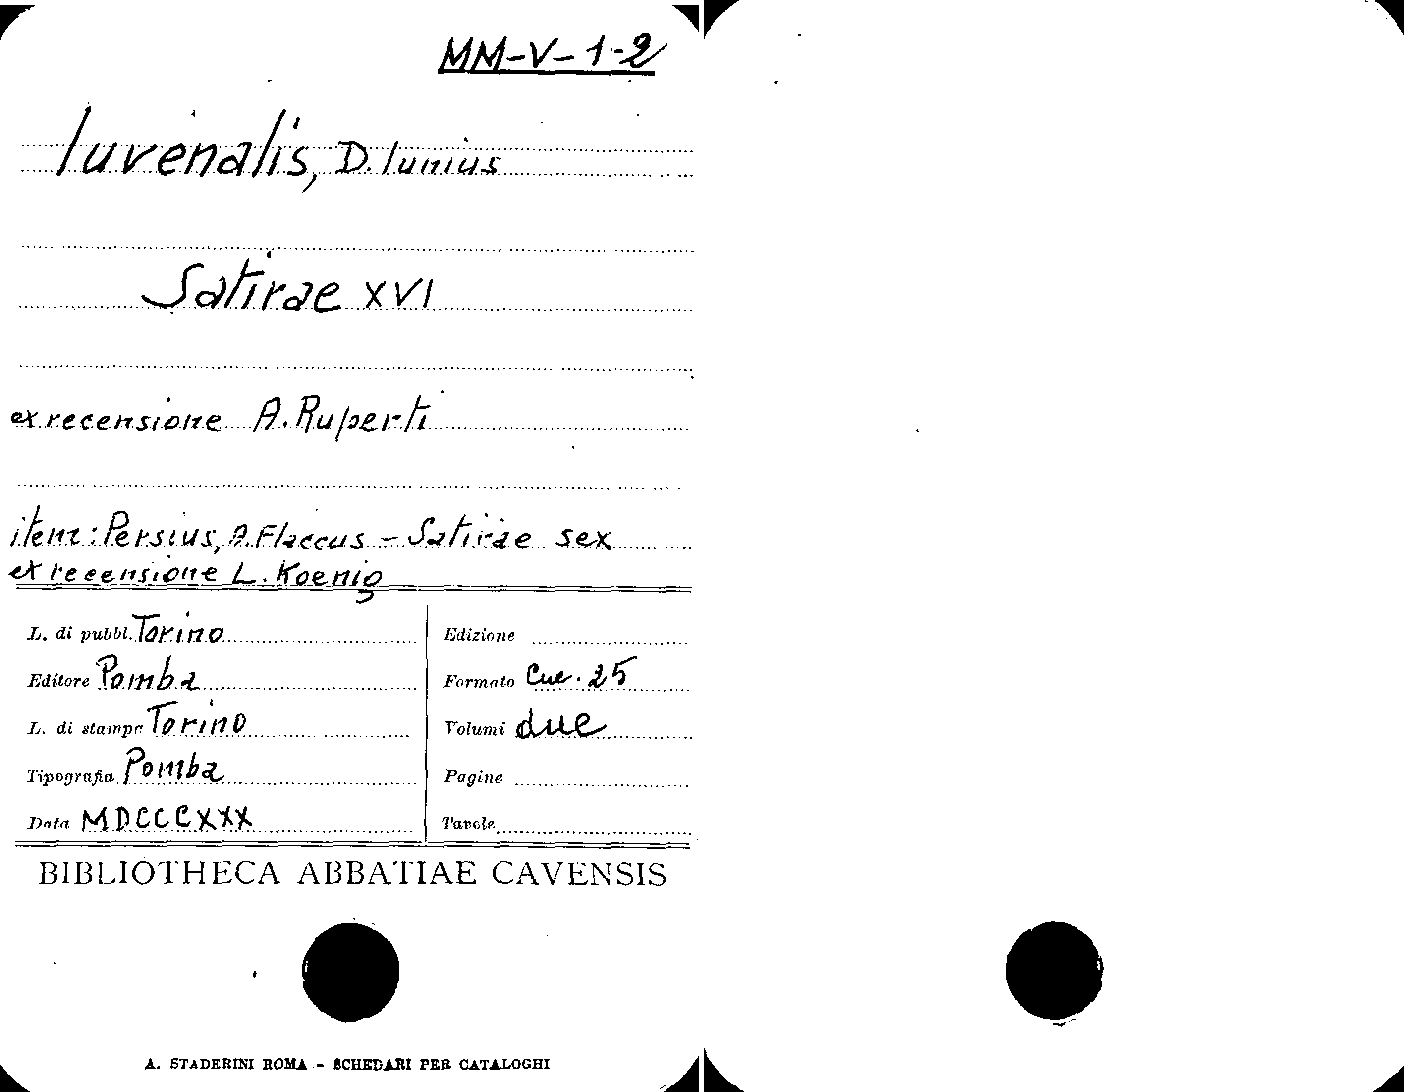 MM-V-1-2
Iuvenalis, D. Iunius
Satirae XVI
ex recensione A. Ruperti
item: Persius, A. Flaccus - Satirae sex
ex recensione L. Koenig
L. di pubbl. Torino
Edizione
Editore Pomba
Formato Cm. 25
L. di stampa Torino
Volumi due
Tipografia Pomba
Pagine
Data MDCCCXXX
Tavole
BIBLIOTHECA ABBATIAE CAVENSIS
A. STADERINI ROMA - SCHEDARI PER CATALOGHI